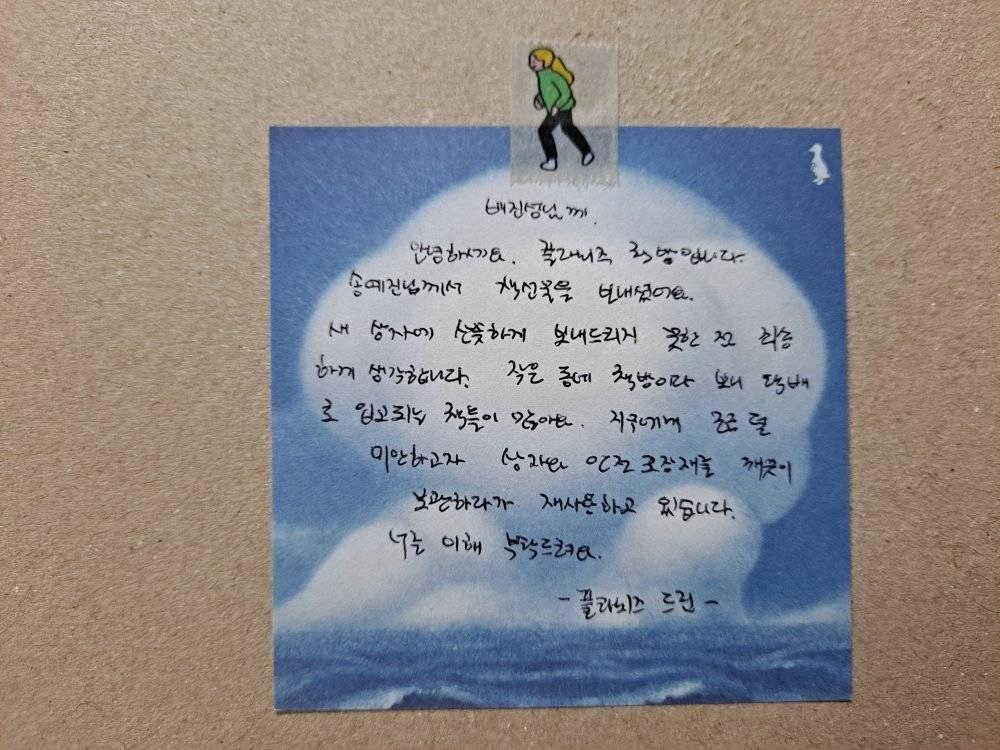 배진성님께.
안녕하세요. 플라뇌즈 책방입니다.
송예진님께서 책선물을 보내셨어요.
새 상자에 산뜻하게 보내드리지 못한 점 죄송
하게 생각합니다. 작은 동네 책방이다 보니 택배
로 입고되는 책들이 많아요. 지구에게 조금 덜
미안하고자 상자와 안전 포장재를 깨끗이
보관하다가 재사용하고 있습니다.
너른 이해 부탁드려요.
- 플라뇌즈 드림 -